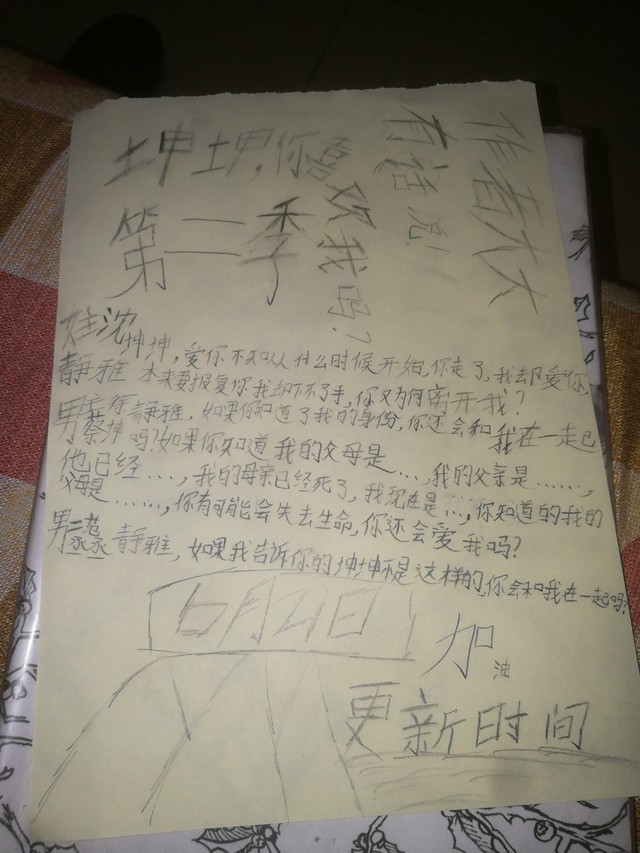 作者大大
有话说!
坤坤,你喜欢我吗?
第二季
女主沈
静雅
坤坤,爱你不知从什么时候开始,你走了,我却爱你,
本来要报复你我却下不了手,你又为何离开我?
男主
蔡坤
静雅,如果你知道了我的身份,你还会和我在一起
吗?如果你知道我的父母是...,我的父亲是......,
他已经...,我的母亲已经死了,我现在是...,你知道的我的
父母是......,你有可能会失去生命,你还会爱我吗?
男二
静雅,如果我告诉你的坤坤不是这样的,你会和我在一起吗?
6月21日
加油
更新时间